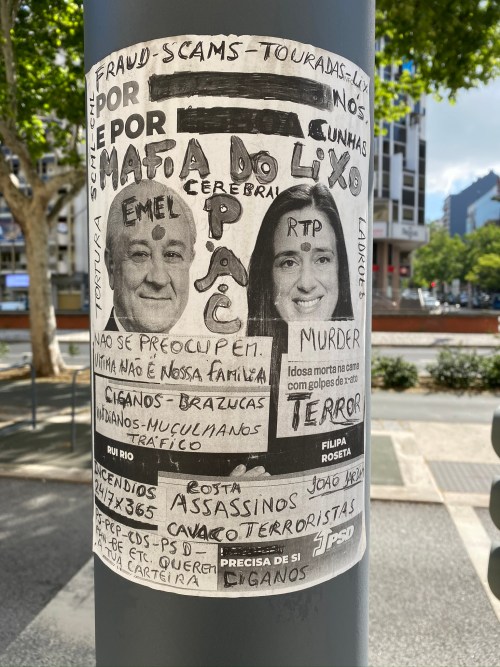 FRAUD-SCAMS-TOURADAS-LIX
POR
NÓS.
E POR
CUNHAS
MAFIA DO LIXO
CEREBRAL
SCML-CML
TORTURA
LADROES
EMEL
PAC
RTP
NÃO SE PREOCUPEM.
VITIMA NÃO É NOSSA FAMILIA
MURDER
Idosa morta na cama
com golpes de x-ato
TERROR
CIGANOS-BRAZUCAS
INDIANOS-MUÇULMANOS
TRÁFICO
RUI RIO
FILIPA
ROSETA
INCENDIOS
24/7X365
COSTA
JOÃO
ASSASSINOS
CAVACO TERRORISTAS
PS-PCP-CDS-PSD-
PAN-BE ETC. QUEREM
A TUA CARTEIRA
PRECISA DE SI
PSD
CIGANOS